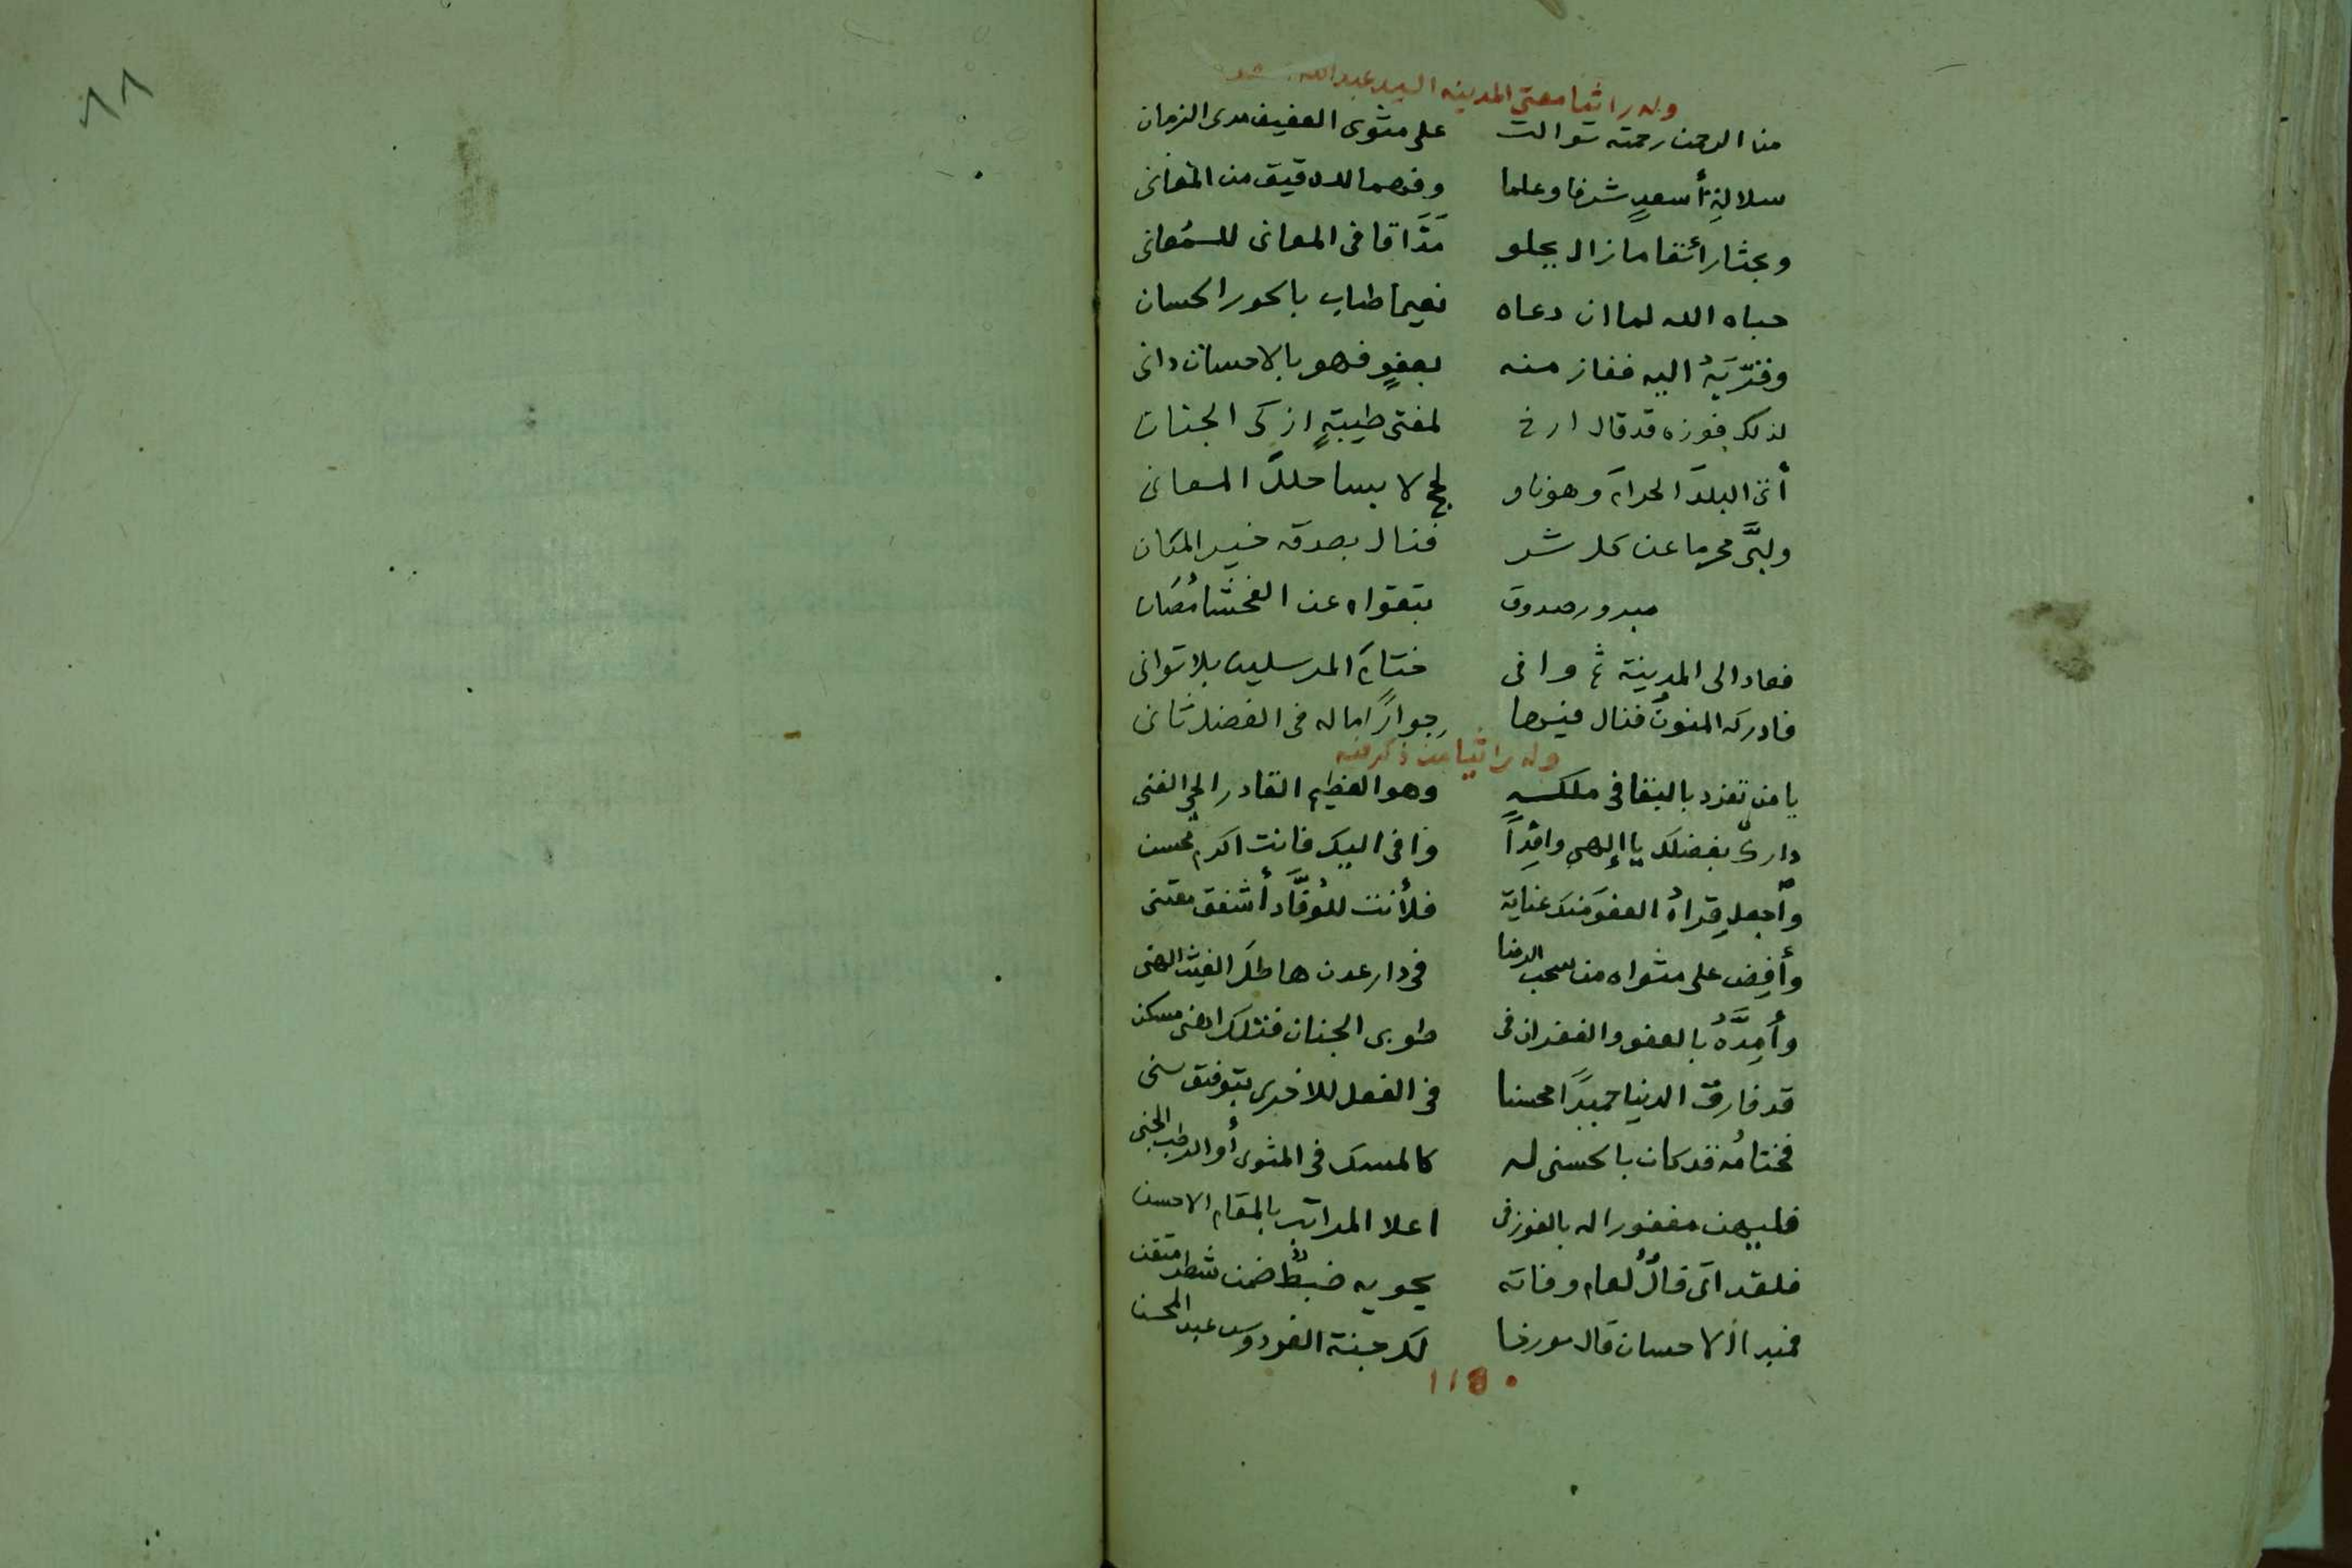 ٨٨
وله راثيا مفتى المدينه السيد عبدالله
من الرحمن رحمته توالت على مثوى العفيف مدى الزمان
سلالةِ أسعدٍ شرفا وعلما وفهما للدقيق من المعانى
وبحثا رائقا مازال يحلو مَذَاقا فى المعانى للسمُعانى
حباه الله لما ان دعاه نعيما طاب بالحور الحسان
وقرّبَهُ اليه ففاز منه بعفوٍ فهو بالاحسان دانى
لذلك فوزه قد قال ارخ لمفتى طيبةٍ ازكى الجنان
أتى البلدَ الحرامَ وهو ناو لحج لابسا حللَ المعانى
ولبَّى محرما عن كل شر فنال بصدقه خير المكان
مبرور صدوق بتقواه عن الفحشا مُصَان
فعاد الى المدينة ثم وافى ختامَ المرسلين بلا توانى
فادركه المنونُ فنال فيها جوارًا ماله فى الفضل ثانى
وله راثيا من ذكر فيه
يا من تفرد بالبقا فى ملكهِ وهو العظيم القادر الحى الغنى
دارك بفضلك يا إلهى وافِدًا وافى اليك فانت اكرم محسن
وٱجعل قِراهُ العفوَ منك عناية فلأنت للوُفَّاد أشفق مقتنى
وأفِض على مثواه من سحب الرضا فى دار عدن هاطلَ الغيث الهنى
وأمِدَّهُ بالعفو والغفران فى طوبى الجنان فتلك اهنى مسكن
قد فارق الدنيا حميدًا محسنا فى الفعل للاخرى بتوفيق سنى
فختامُه قد كان بالحسنى له كالمسك فى المثوى أو الرطب الجنى
فليهن مغفورا له بالفوز فى اعلا المراتب بالمقام الاحسن
فلقد اتى فالٌ لعام وفاته يحويه ضبطٌ ضمن شطر متقن
فمنبر الاحسان قال مورخا لك جنة الفردوس عبد المحسن